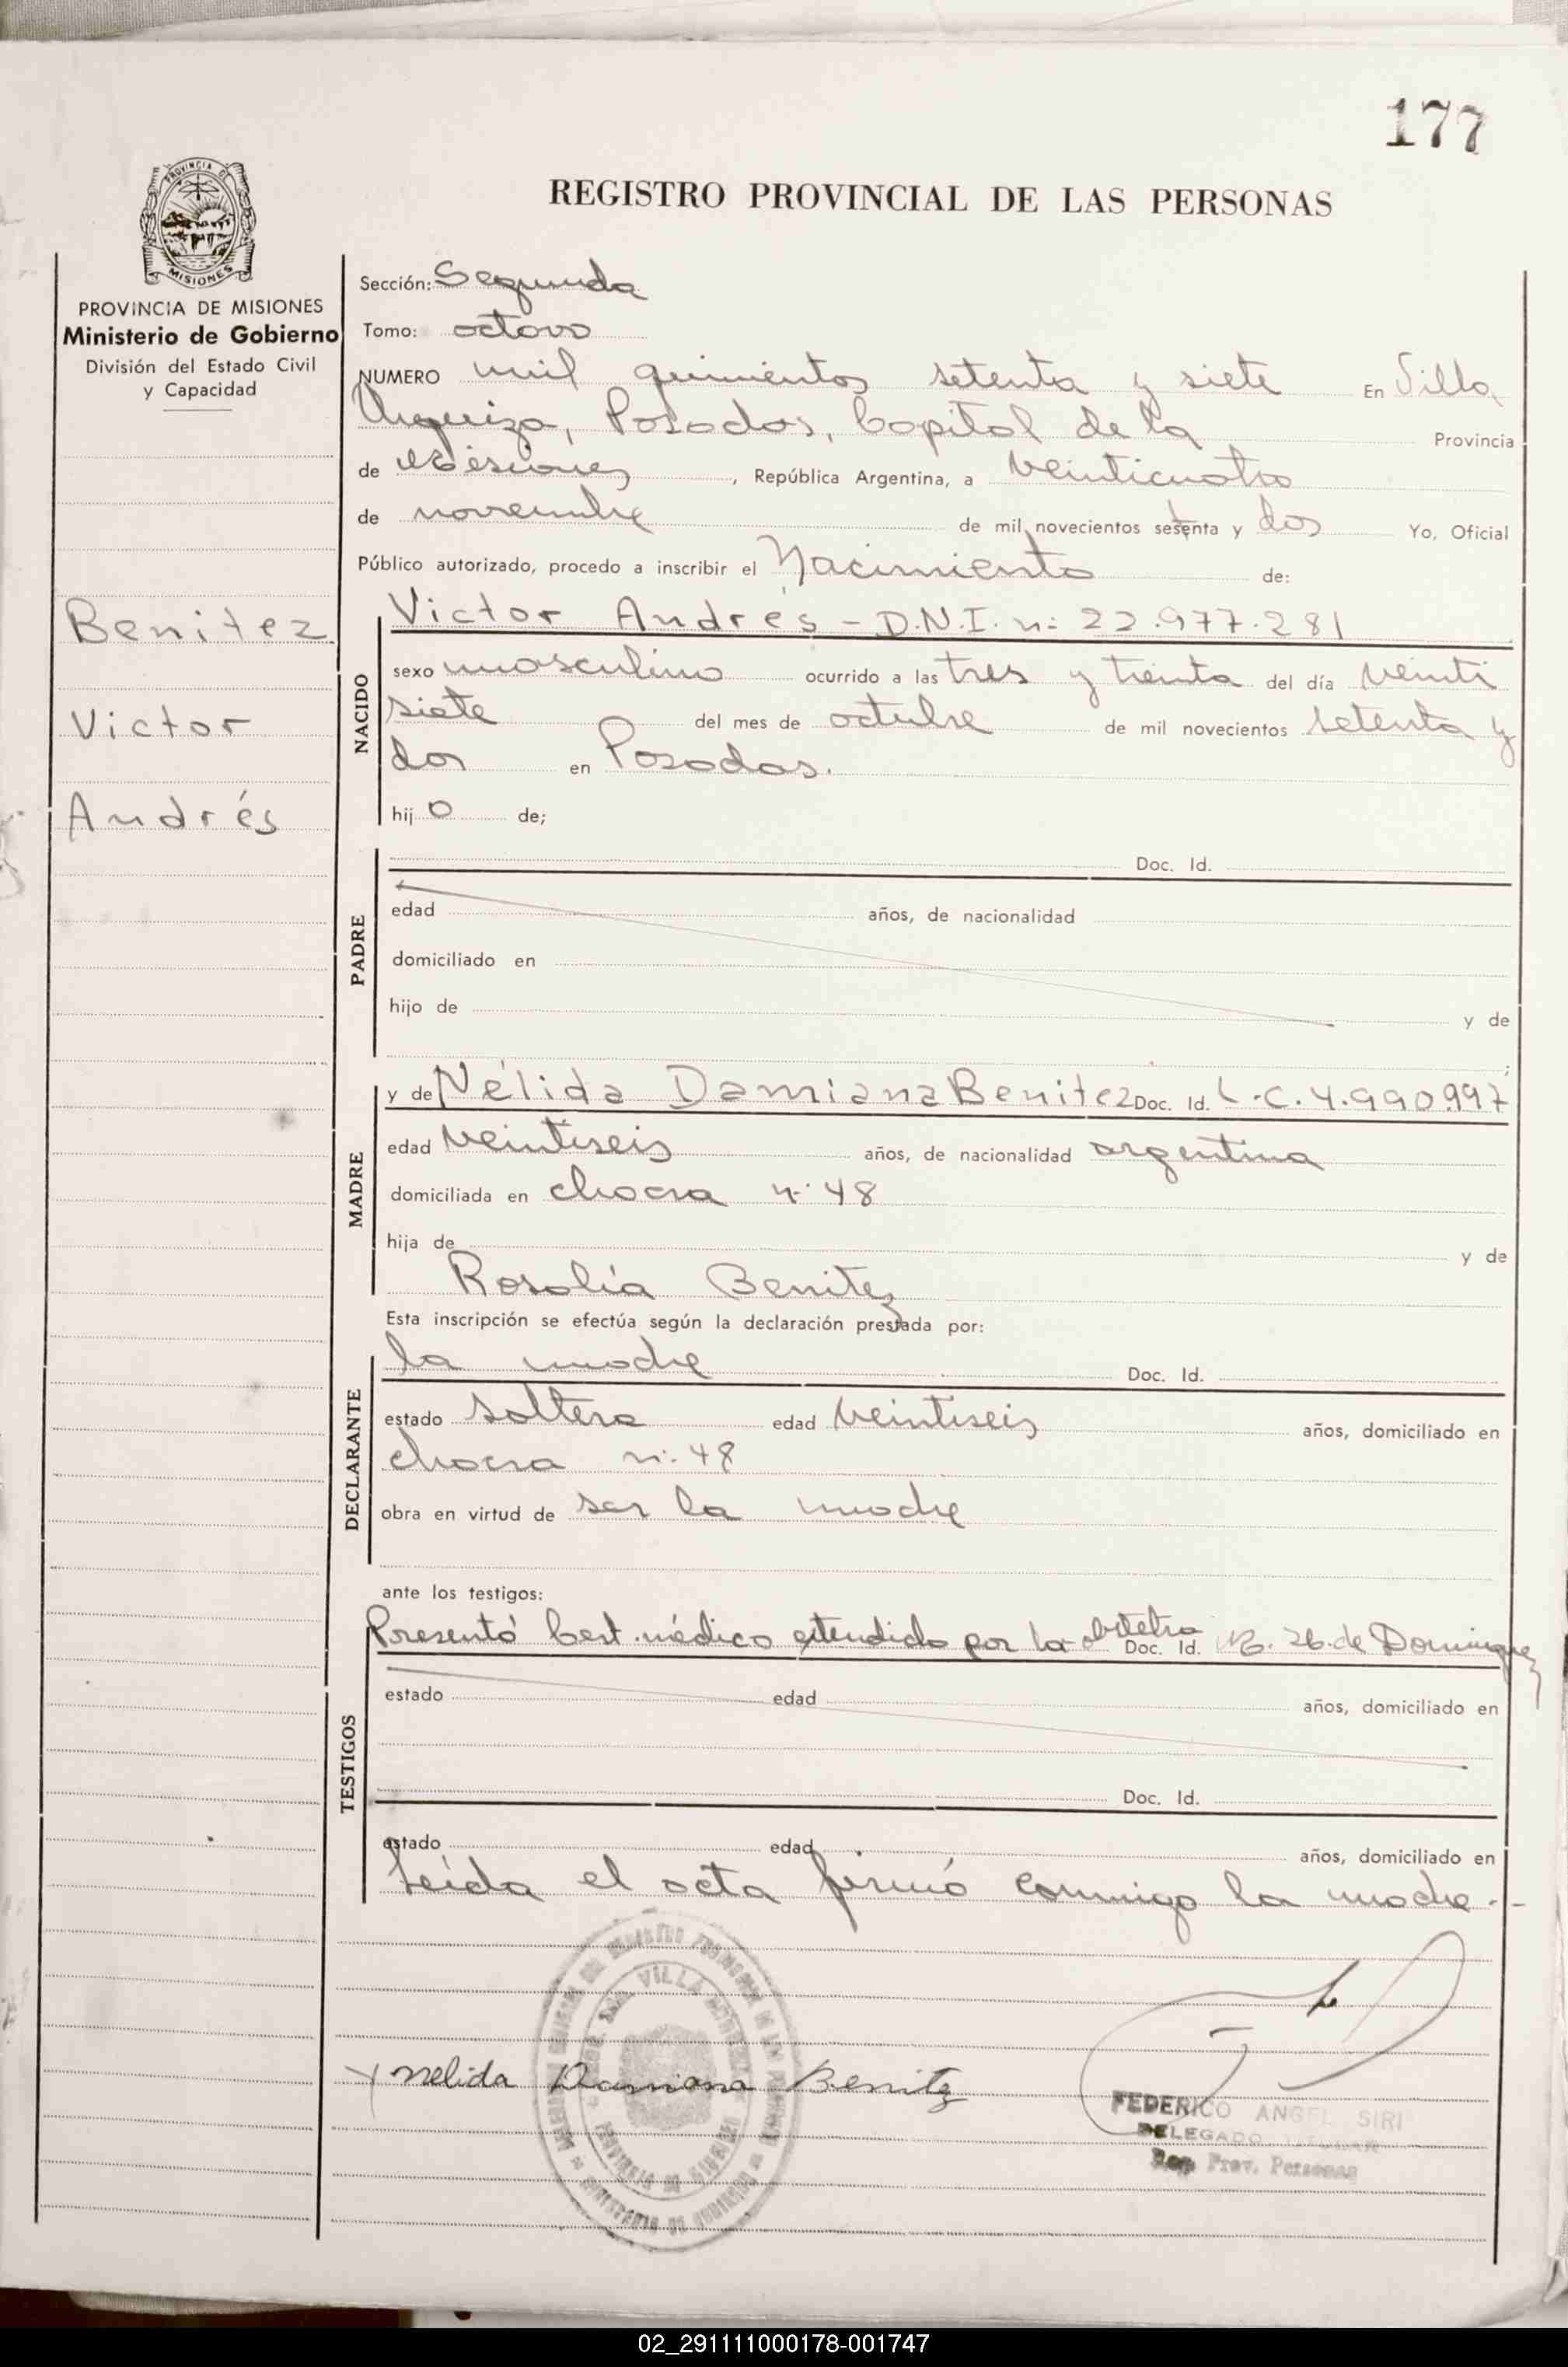 177
REGISTRO PROVINCIAL DE LAS PERSONAS
PROVINCIA DE MISIONES
PROVINCIA DE MISIONES
Ministerio de Gobierno
División del Estado Civil
y Capacidad
Benitez
Victor
Andrés
Sección: Segunda
Tomo: octavo
NUMERO mil quinientos setenta y siete En Villa
Urquiza, Posadas, Capital de la Provincia
de Misiones, República Argentina, a veinticuatro
de noviembre de mil novecientos setenta y dos Yo, Oficial
Público autorizado, procedo a inscribir el Nacimiento de:
NACIDO
Victor Andrés - D.N.I. n: 22.977.281
sexo masculino ocurrido a las tres y treinta del día veinti
siete del mes de octubre de mil novecientos setenta y
dos en Posadas.
hij o de;
PADRE
Doc. Id.
edad años, de nacionalidad
domiciliado en
hijo de y de
;
MADRE
y de Nélida Damiana Benitez Doc. Id. L.C. 4.990.997
edad veintiseis años, de nacionalidad argentina
domiciliada en chacra n: 48
hija de y de
Rosalía Benitez
Esta inscripción se efectúa según la declaración prestada por:
DECLARANTE
la madre Doc. Id.
estado soltera edad veintiseis años, domiciliado en
chacra n: 48
obra en virtud de ser la madre
ante los testigos:
TESTIGOS
Presentó Cert. médico extendido por la obstetra Doc. Id. de Dominguez
estado edad años, domiciliado en
Doc. Id.
estado edad años, domiciliado en
Leída el acta firmó conmigo la madre.-
Nelida Damiana Benitez
VILLA
PROVINCIA DE MISIONES
MINISTERIO DE GOBIERNO
FEDERICO ANGEL SIRI
DELEGADO TITULAR
Reg. Prov. Personas
02_291111000178-001747